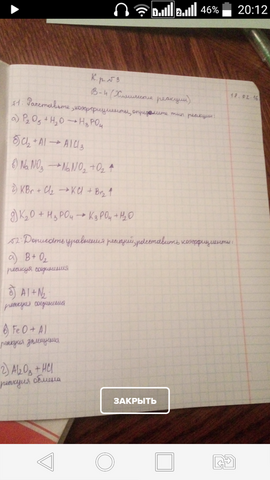 46% 20:12
К р № 3
В-4 (Химические реакции)
№1. Расставьте коэффициенты, определите тип реакции:
а) P₂O₅ + H₂O → H₃PO₄
б) Cl₂ + Al → AlCl₃
в) NaNO₃ → NaNO₂ + O₂ ↑
г) KBr + Cl₂ → KCl + Br₂ ↑
д) K₂O + H₃PO₄ → K₃PO₄ + H₂O
№2. Допишите уравнения реакций, расставьте коэффициенты:
а) B + O₂
реакция соединения
б) Al + N₂
реакция соединения
в) FeO + Al
реакция замещения
г) Al₂O₃ + HCl
реакция обмена
ЗАКРЫТЬ